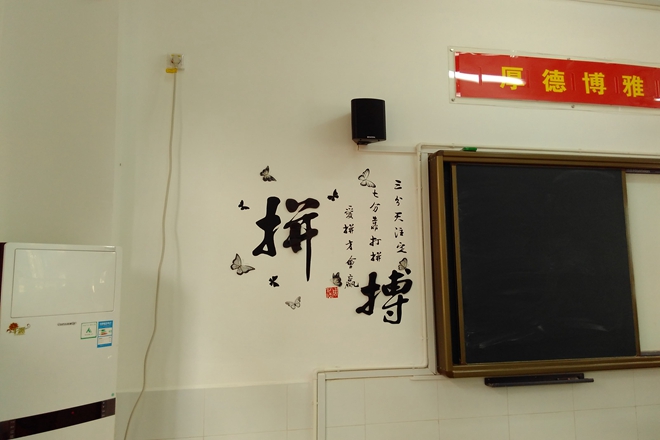 厚德博雅
拼
搏
三分天注定
七分靠打拼
爱拼才会赢